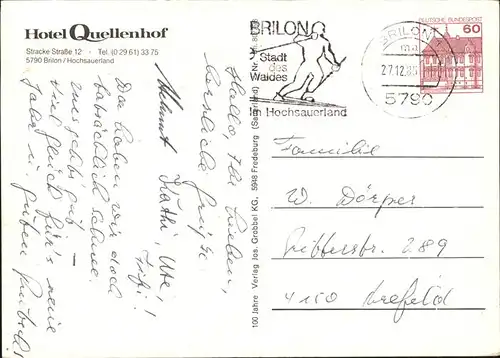 Hotel Quellenhof
Stracke Straße 12 · Tel. (0 29 61) 33 75
5790 Brilon / Hochsauerland
BRILON
Stadt
des
Waldes
Im Hochsauerland
BRILON 1
27.12.
5790
DEUTSCHE BUNDESPOST
60
Hallo Ihr Lieben,
herzliche Grüße
Helmut, Käthi, Ute,
Da haben wir doch
tatsächlich Schnee
viel Glück für's neue
Jahr u. guten Rutsch!
100 Jahre Verlag Jos. Grobbel KG, 5948 Fredeburg (Sauerland)
Familie
W. Dörper
289
4150 Krefeld